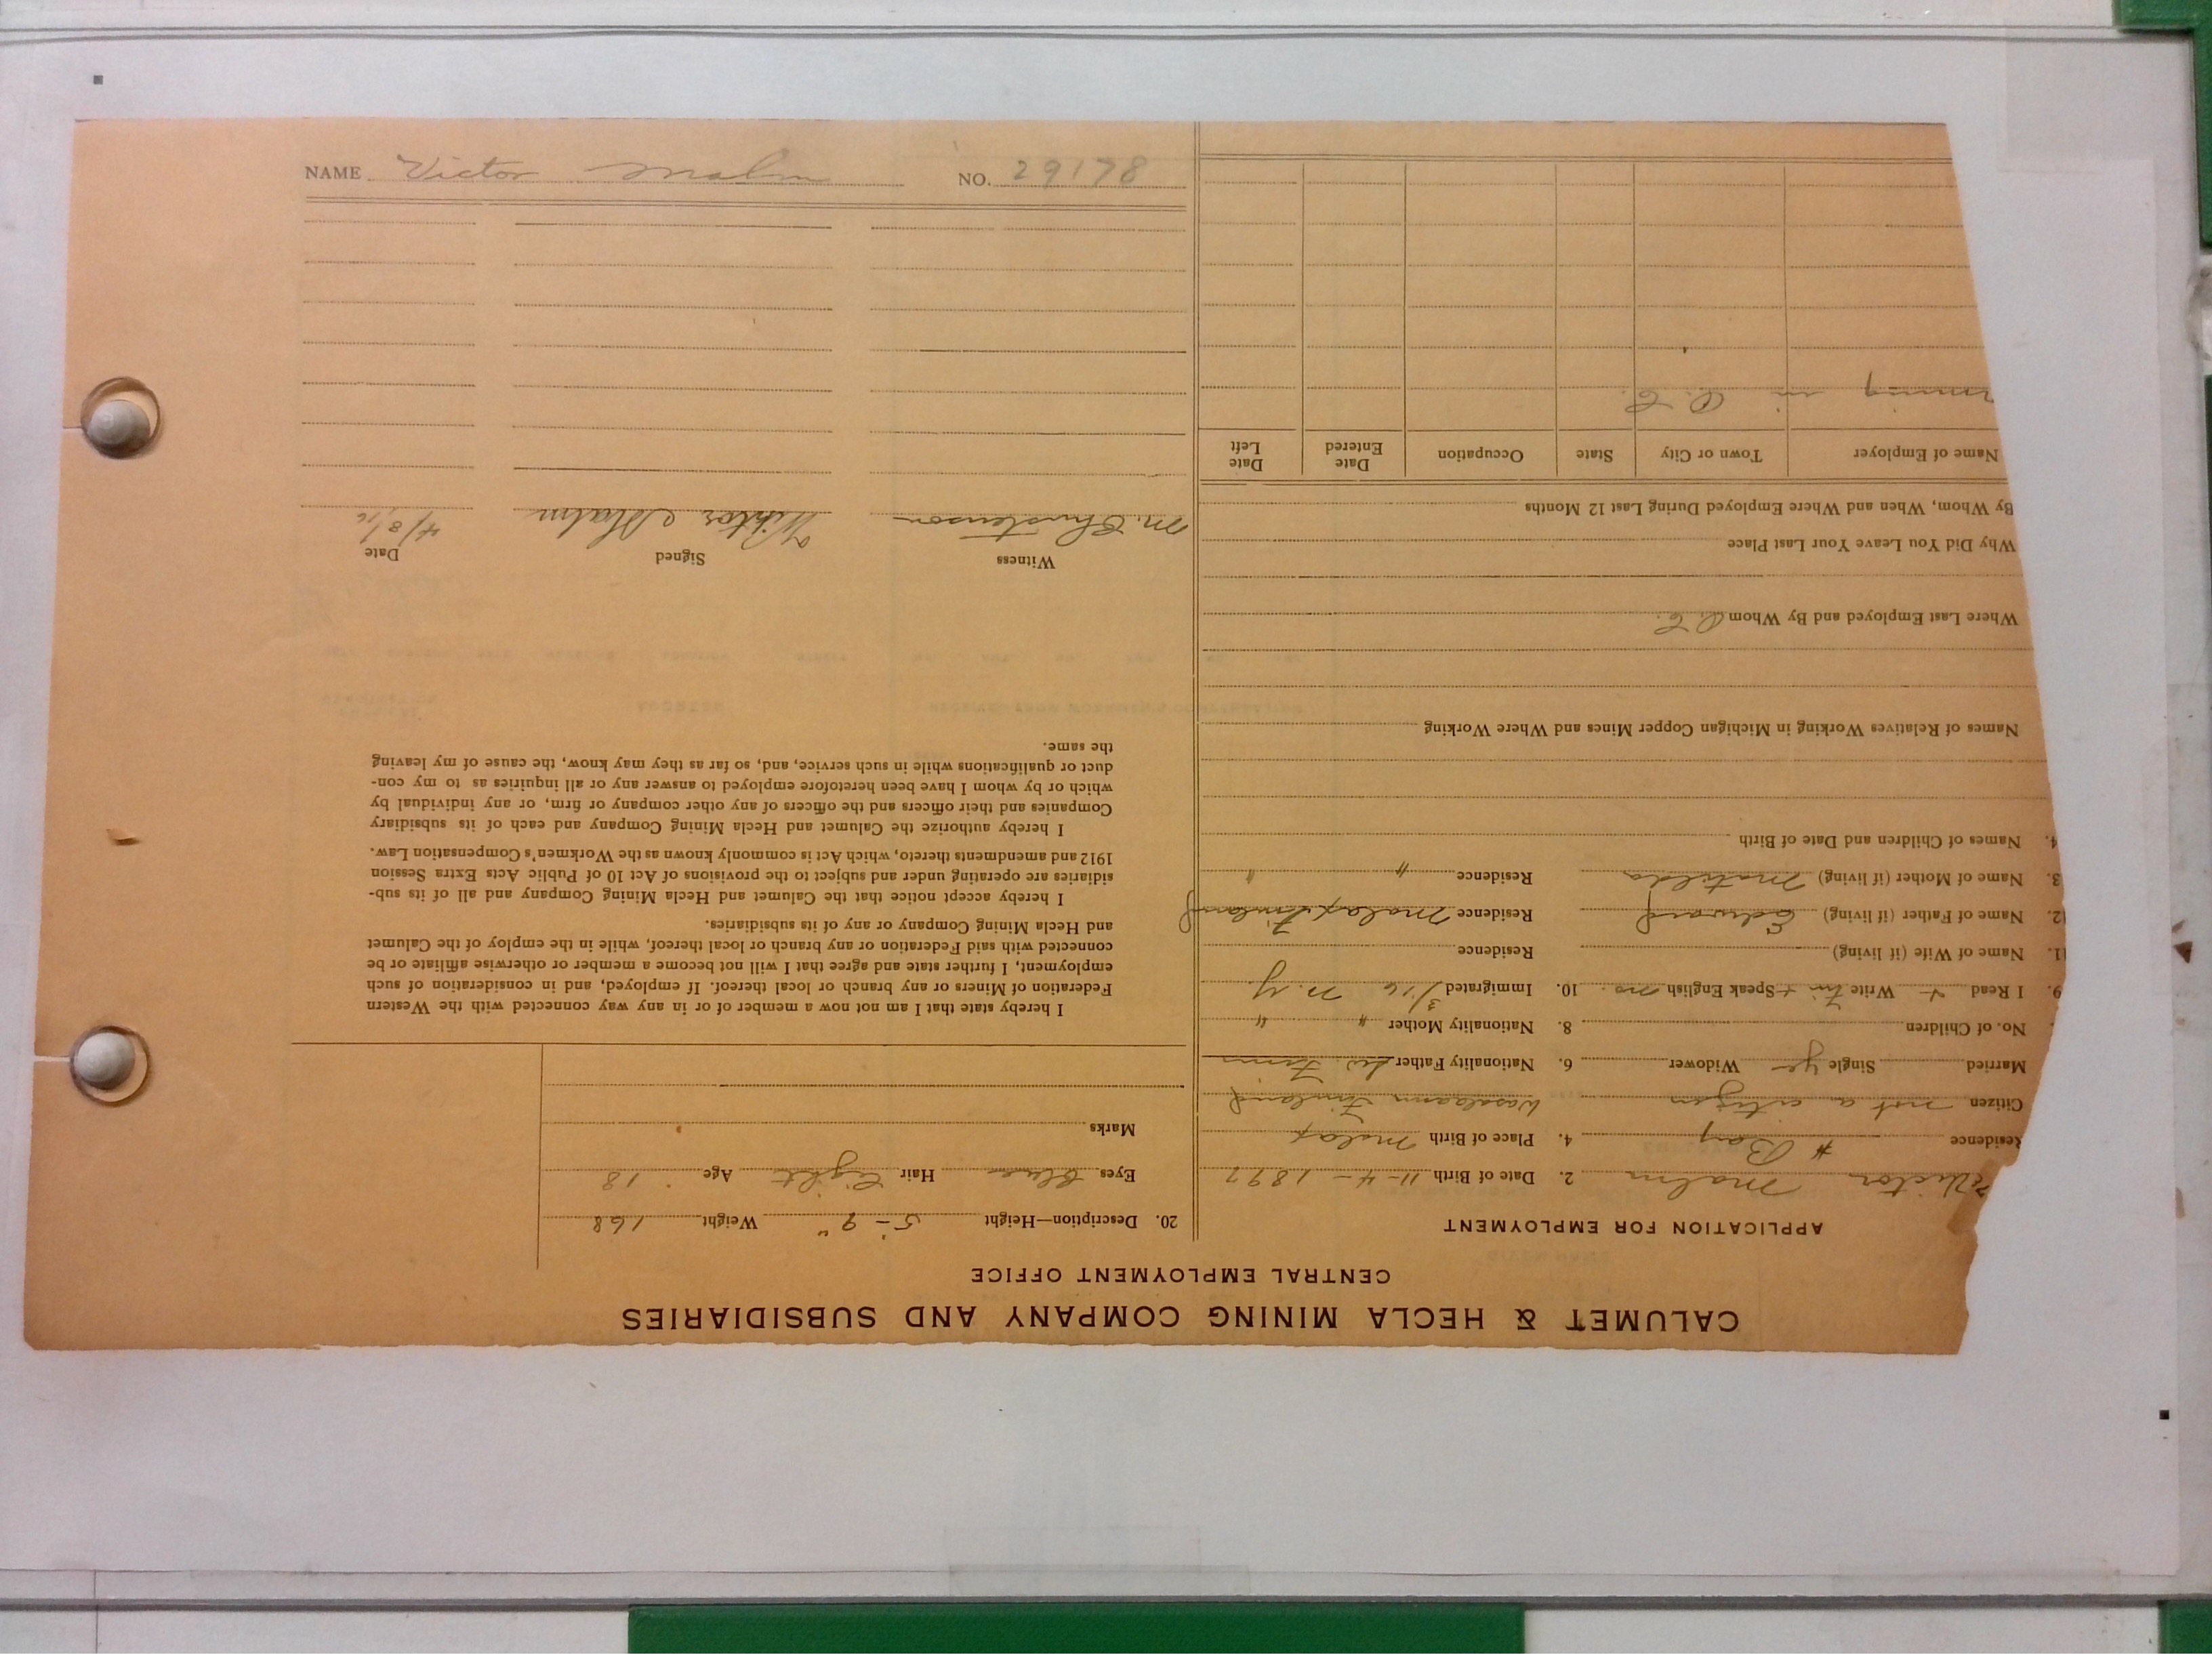 NAME Victor Malm NO. 29178
CALUMET & HECLA MINING COMPANY AND SUBSIDIARIES
CENTRAL EMPLOYMENT OFFICE
APPLICATION FOR EMPLOYMENT
Victor Malm 2. Date of Birth 11-4-1897
Residence # Bay 4. Place of Birth Malax
Citizen not a citizen Wasalaani Finland
Married Single yes Widower 6. Nationality Father Sw. Finn
No. of Children 8. Nationality Mother " "
9. I Read + Write Fin + Speak English no. 10. Immigrated 3/16 N.Y.
11. Name of Wife (if living) Residence
12. Name of Father (if living) Edward Residence Malax Finland
3. Name of Mother (if living) Matilda Residence " "
4. Names of Children and Date of Birth
Names of Relatives Working in Michigan Copper Mines and Where Working
Where Last Employed and By Whom O.C.
Why Did You Leave Your Last Place
By Whom, When and Where Employed During Last 12 Months
Name of Employer Town or City State Occupation Date Entered Date Left
in O.C.
20. Description—Height 5'-9" Weight 168
Eyes Blue Hair Light Age 18
Marks
I hereby state that I am not now a member of or in any way connected with the Western
Federation of Miners or any branch or local thereof. If employed, and in consideration of such
employment, I further state and agree that I will not become a member or otherwise affiliate or be
connected with said Federation or any branch or local thereof, while in the employ of the Calumet
and Hecla Mining Company or any of its subsidiaries.
I hereby accept notice that the Calumet and Hecla Mining Company and all of its sub-
sidiaries are operating under and subject to the provisions of Act 10 of Public Acts Extra Session
1912 and amendments thereto, which Act is commonly known as the Workmen's Compensation Law.
I hereby authorize the Calumet and Hecla Mining Company and each of its subsidiary
Companies and their officers and the officers of any other company or firm, or any individual by
which or by whom I have been heretofore employed to answer any or all inquiries as to my con-
duct or qualifications while in such service, and, so far as they may know, the cause of my leaving
the same.
Witness Signed Date
M. Christenson Viktor Malm 4/8/16